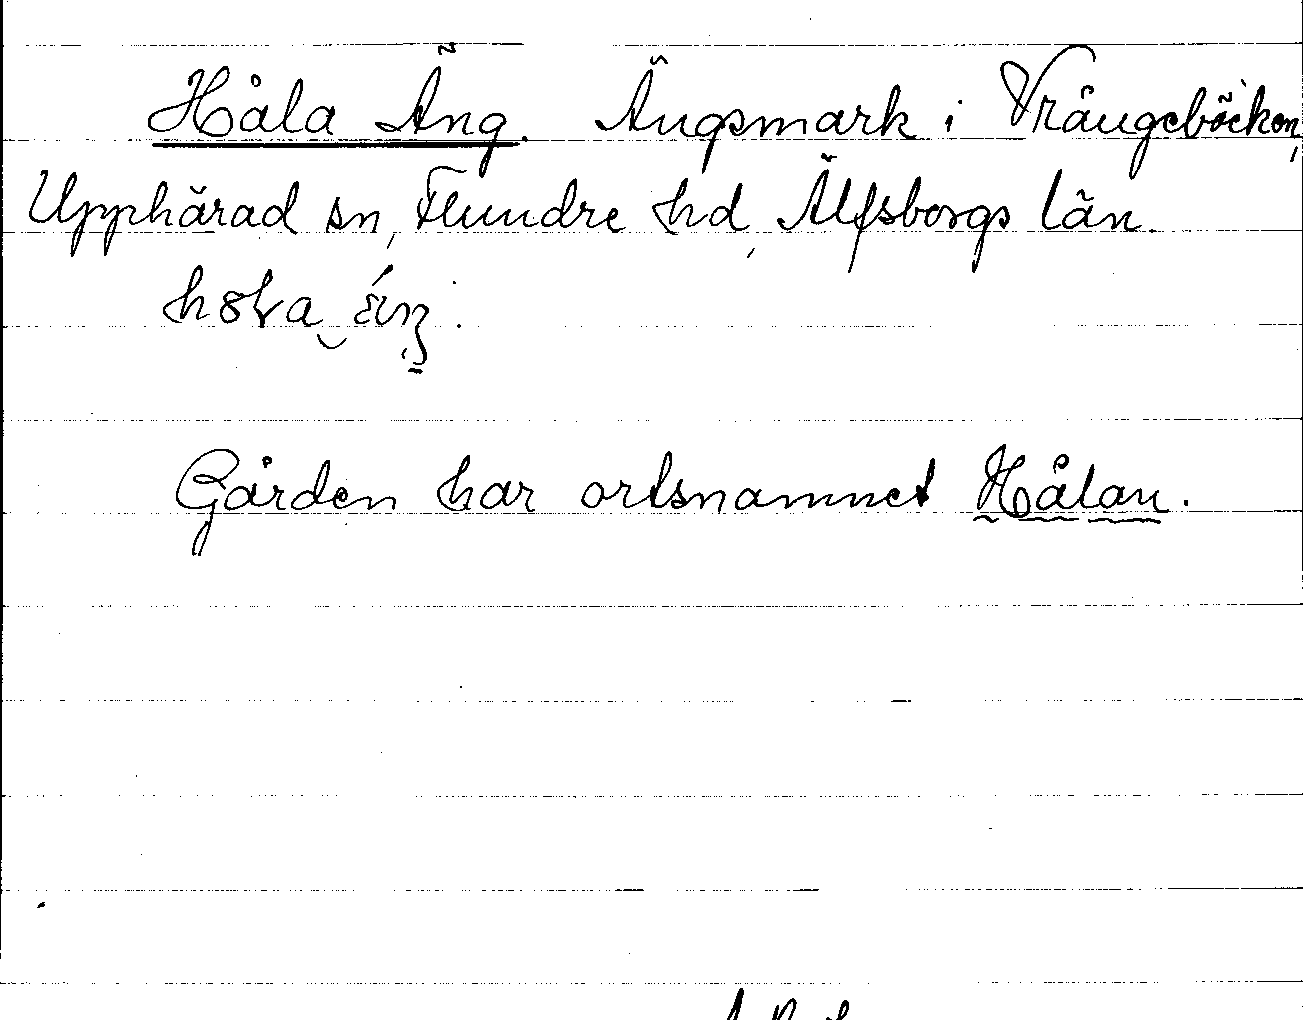 Håla Äng. Ängsmark i Vrångebäcken,
Upphärad sn, Flundre hd, Älfsborgs län.
Gården har ortsnamnet Hålan.